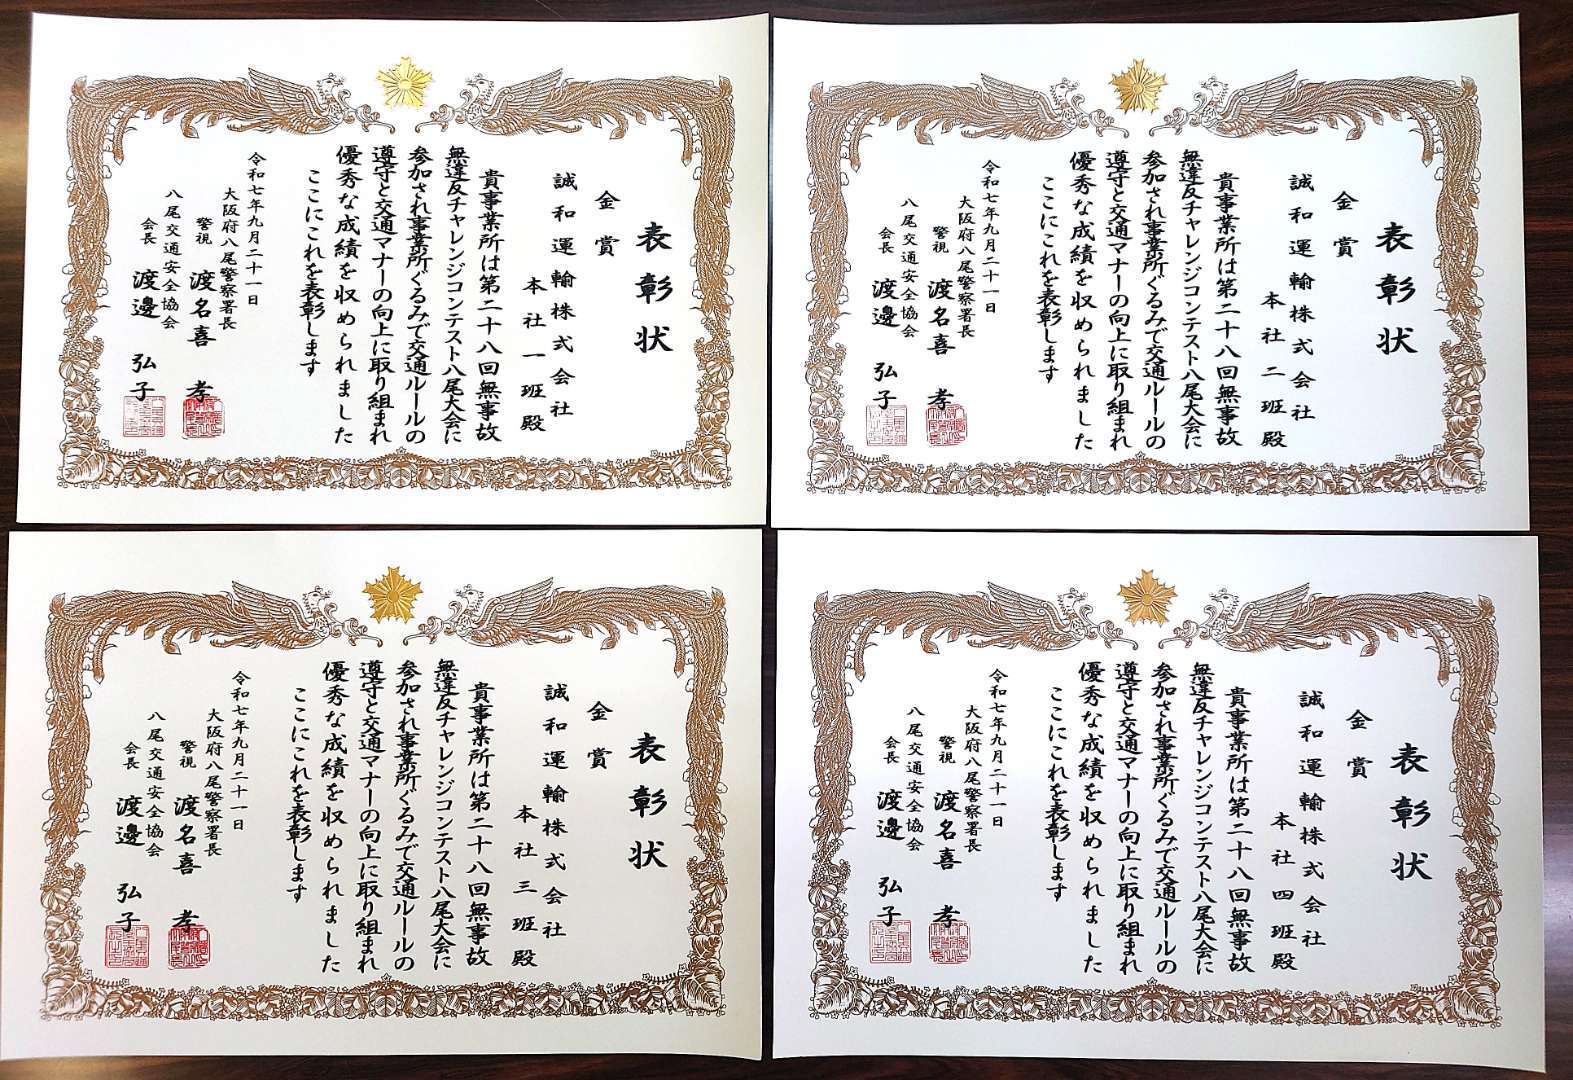 表彰状
金賞
誠和運輸株式会社
本社一班殿
貴事業所は第二十八回無事故
無違反チャレンジコンテスト八尾大会に
参加され事業所ぐるみで交通ルールの
遵守と交通マナーの向上に取り組まれ
優秀な成績を収められました
ここにこれを表彰します
令和七年九月二十一日
大阪府八尾警察署長
警視 渡名喜 孝
八尾交通安全協会
会長 渡邉 弘子
表彰状
金賞
誠和運輸株式会社
本社二班殿
貴事業所は第二十八回無事故
無違反チャレンジコンテスト八尾大会に
参加され事業所ぐるみで交通ルールの
遵守と交通マナーの向上に取り組まれ
優秀な成績を収められました
ここにこれを表彰します
令和七年九月二十一日
大阪府八尾警察署長
警視 渡名喜 孝
八尾交通安全協会
会長 渡邉 弘子
表彰状
金賞
誠和運輸株式会社
本社三班殿
貴事業所は第二十八回無事故
無違反チャレンジコンテスト八尾大会に
参加され事業所ぐるみで交通ルールの
遵守と交通マナーの向上に取り組まれ
優秀な成績を収められました
ここにこれを表彰します
令和七年九月二十一日
大阪府八尾警察署長
警視 渡名喜 孝
八尾交通安全協会
会長 渡邉 弘子
表彰状
金賞
誠和運輸株式会社
本社四班殿
貴事業所は第二十八回無事故
無違反チャレンジコンテスト八尾大会に
参加され事業所ぐるみで交通ルールの
遵守と交通マナーの向上に取り組まれ
優秀な成績を収められました
ここにこれを表彰します
令和七年九月二十一日
大阪府八尾警察署長
警視 渡名喜 孝
八尾交通安全協会
会長 渡邉 弘子